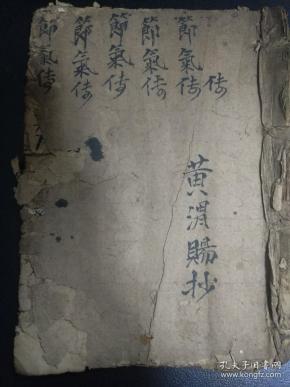 節氣
節氣
節氣
節氣
節氣
黄渭賜抄
孔夫子旧书网